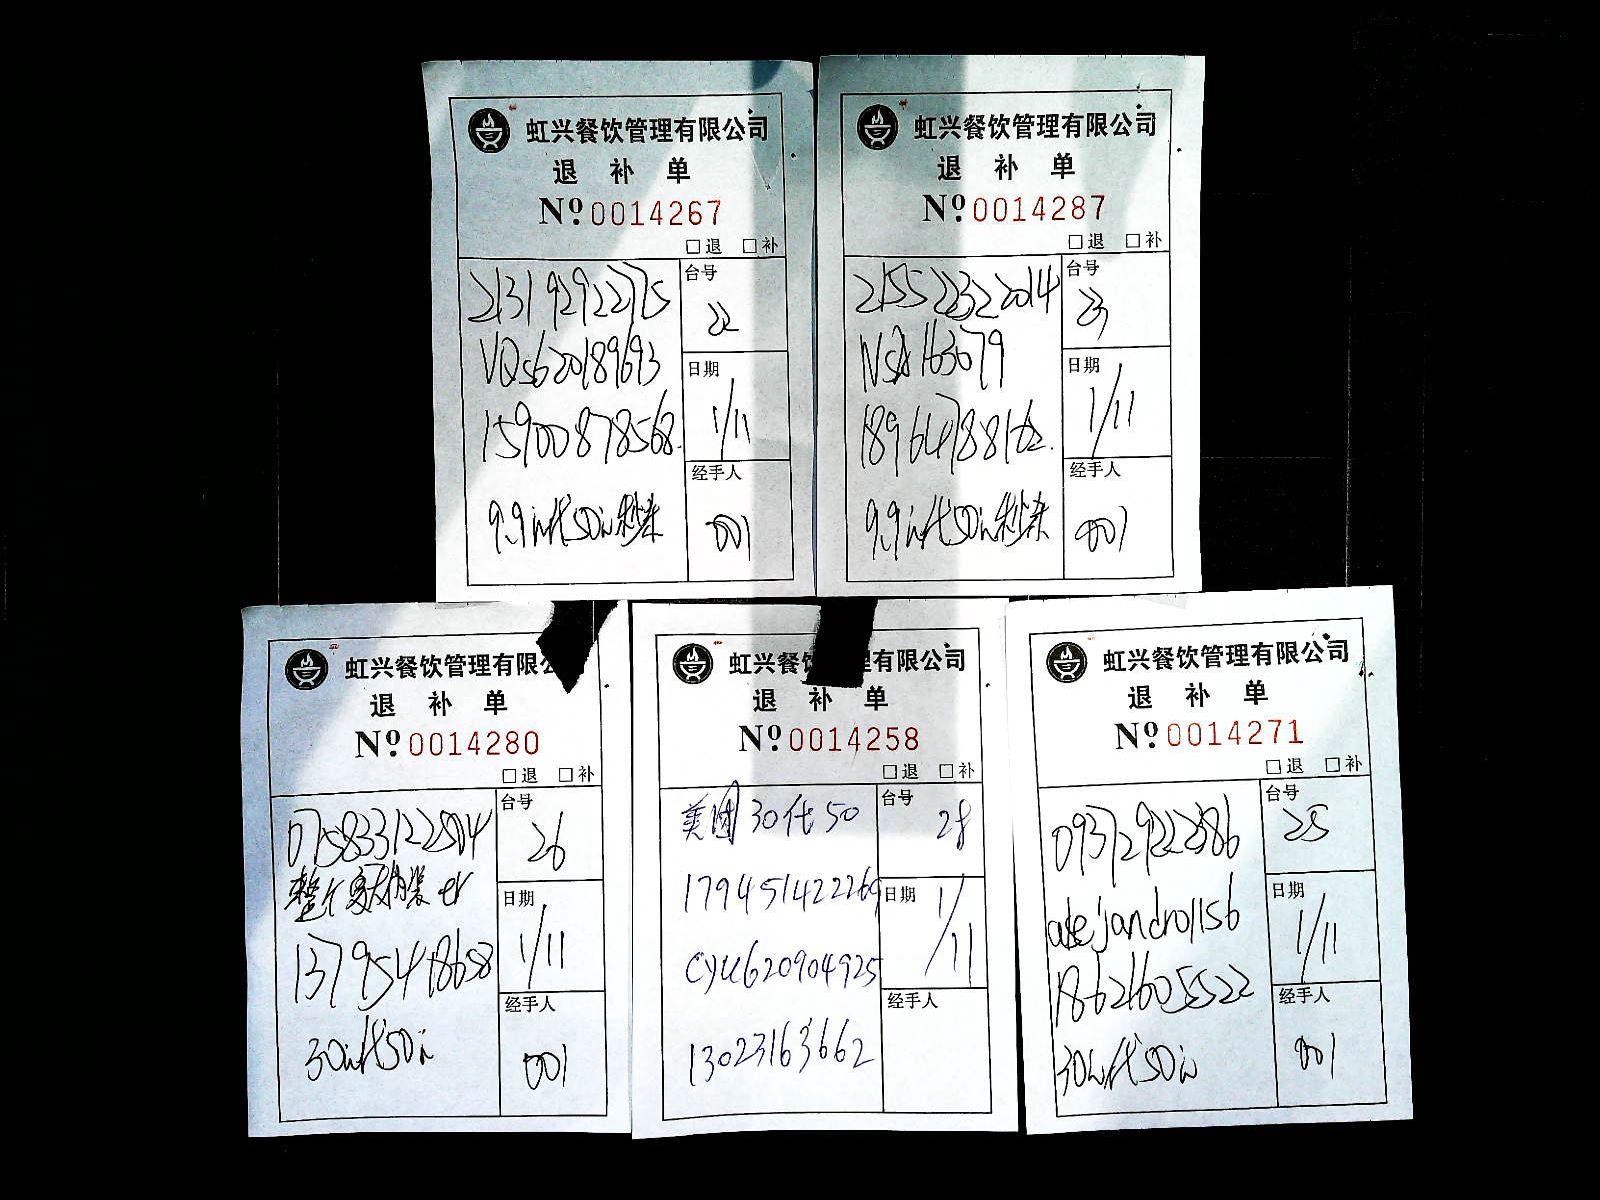 虹兴餐饮管理有限公司
退补单
№0014267
□退 □补
213192922775
台号
22
VQs620189693
日期
1/11
15900878568
经手人
001
9.9代50秒杀
虹兴餐饮管理有限公司
退补单
№0014287
□退 □补
台号
23
日期
1/11
经手人
001
9.9代50秒杀
虹兴餐饮管理有限公
退补单
№0014280
□退 □补
台号
26
日期
1/11
13795418658
经手人
001
30代50
虹兴餐 理有限公司
退补单
№0014258
□退 □补
美团30代50
台号
28
179451422269
日期
1/11
cyu620904925
经手人
13023163662
虹兴餐饮管理有限公司
退补单
№0014271
□退 □补
093729222386
台号
25
alejandro1156
日期
1/11
18621605522
经手人
001
30代50